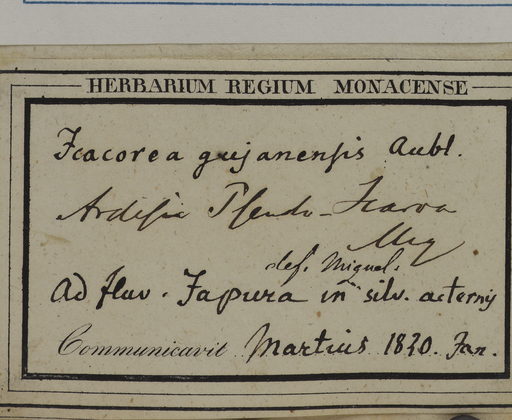 HERBARIUM REGIUM MONACENSE
Icacorea gujanensis Aubl.
Ardisia Pseudo-Icacoa
Miq
def. Miquel.
Ad fluv. Japura in silv. aeternis
Communicavit Martius 1820. Jan.